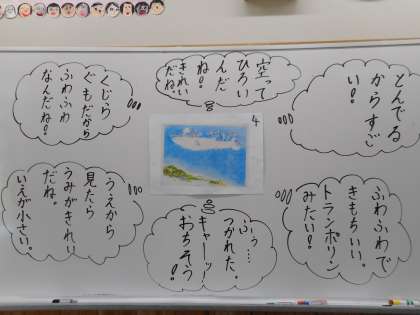 とんでる
からすごい!
空って
ひろい
んだ
ね!
きれい
だね。
くじら
ぐもだから
ふわふわ
なんだね!
4
ふわふわで
きもちいい。
トランポリン
みたい!
ふぅ…
つかれた。
キャーッ
おちそう!
うえから
見たら
うみがきれい
だね。
いえが小さい。